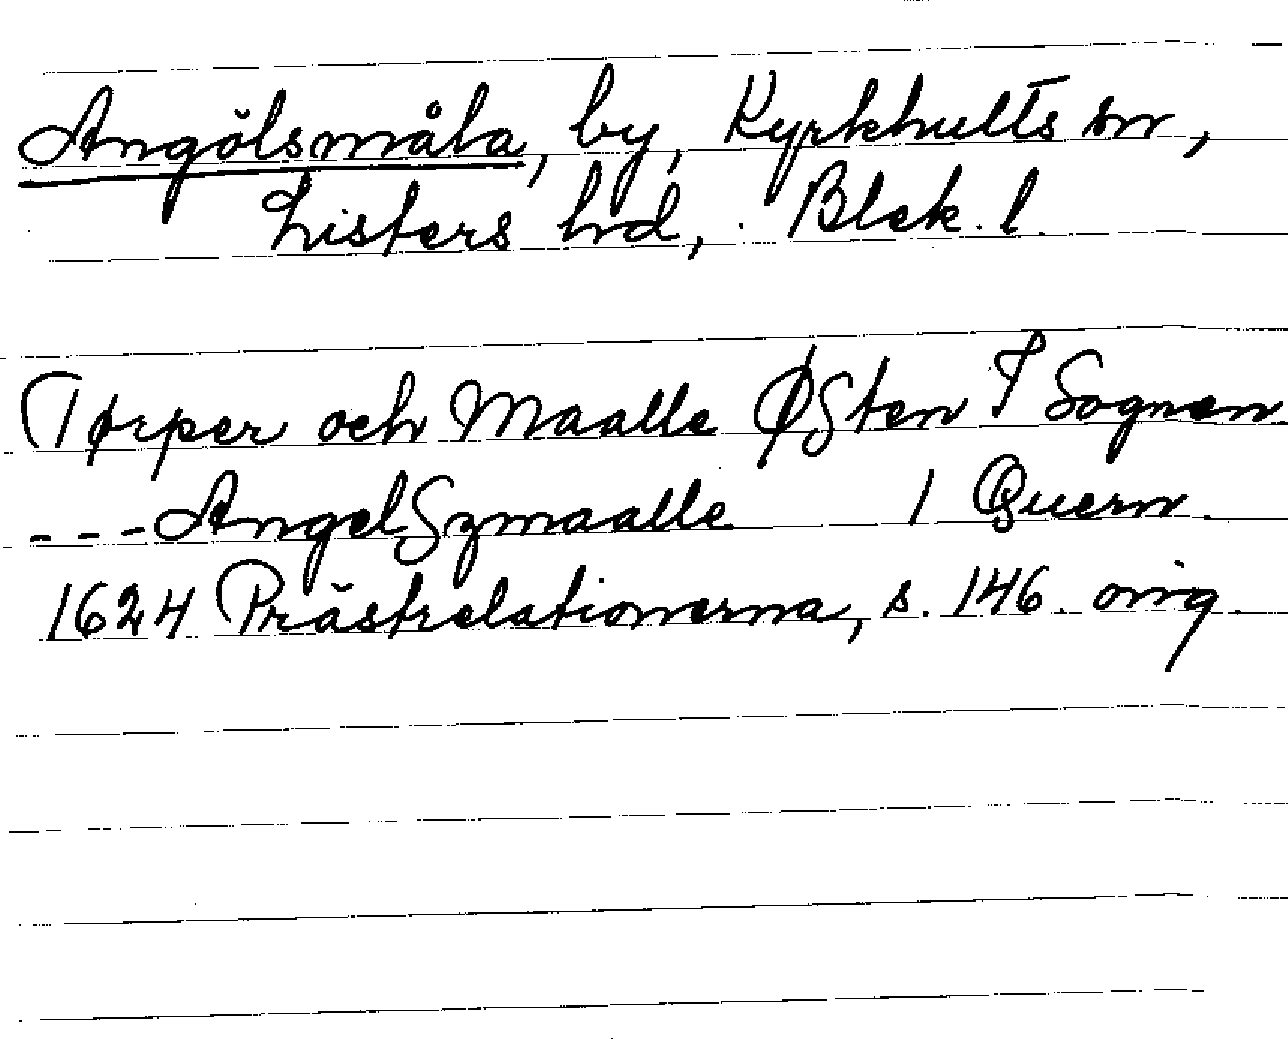 Angölsmåla, by, Kyrkhults sn,
Listers hd, Blek. l.
Tørper och Maalle ØSten I Sognen
- - - AngelSzmaalle 1 Quern.
1624 Prästrelationerna, s. 146. orig.